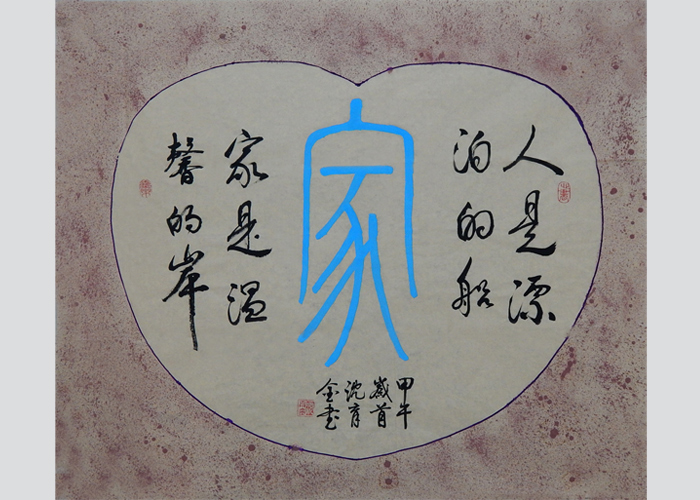 人是漂
泊的船
家
家是温
馨的岸
甲午
岁首
沈育
金书